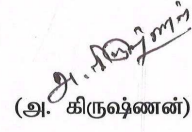 அ. கிருஷ்ணன்
(அ. கிருஷ்ணன்)